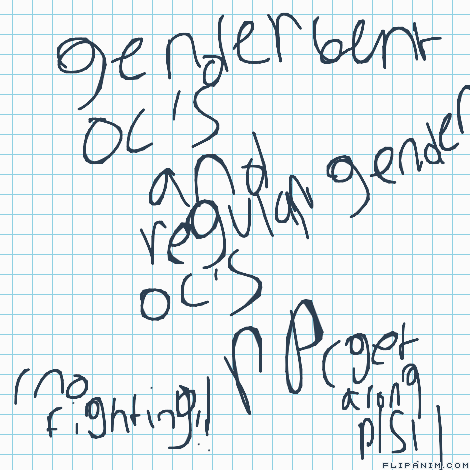 genderbent
oc's
and
regular gender
oc's
rp (get
along
pls!!
(no
fighting!!
FLIPANIM.COM